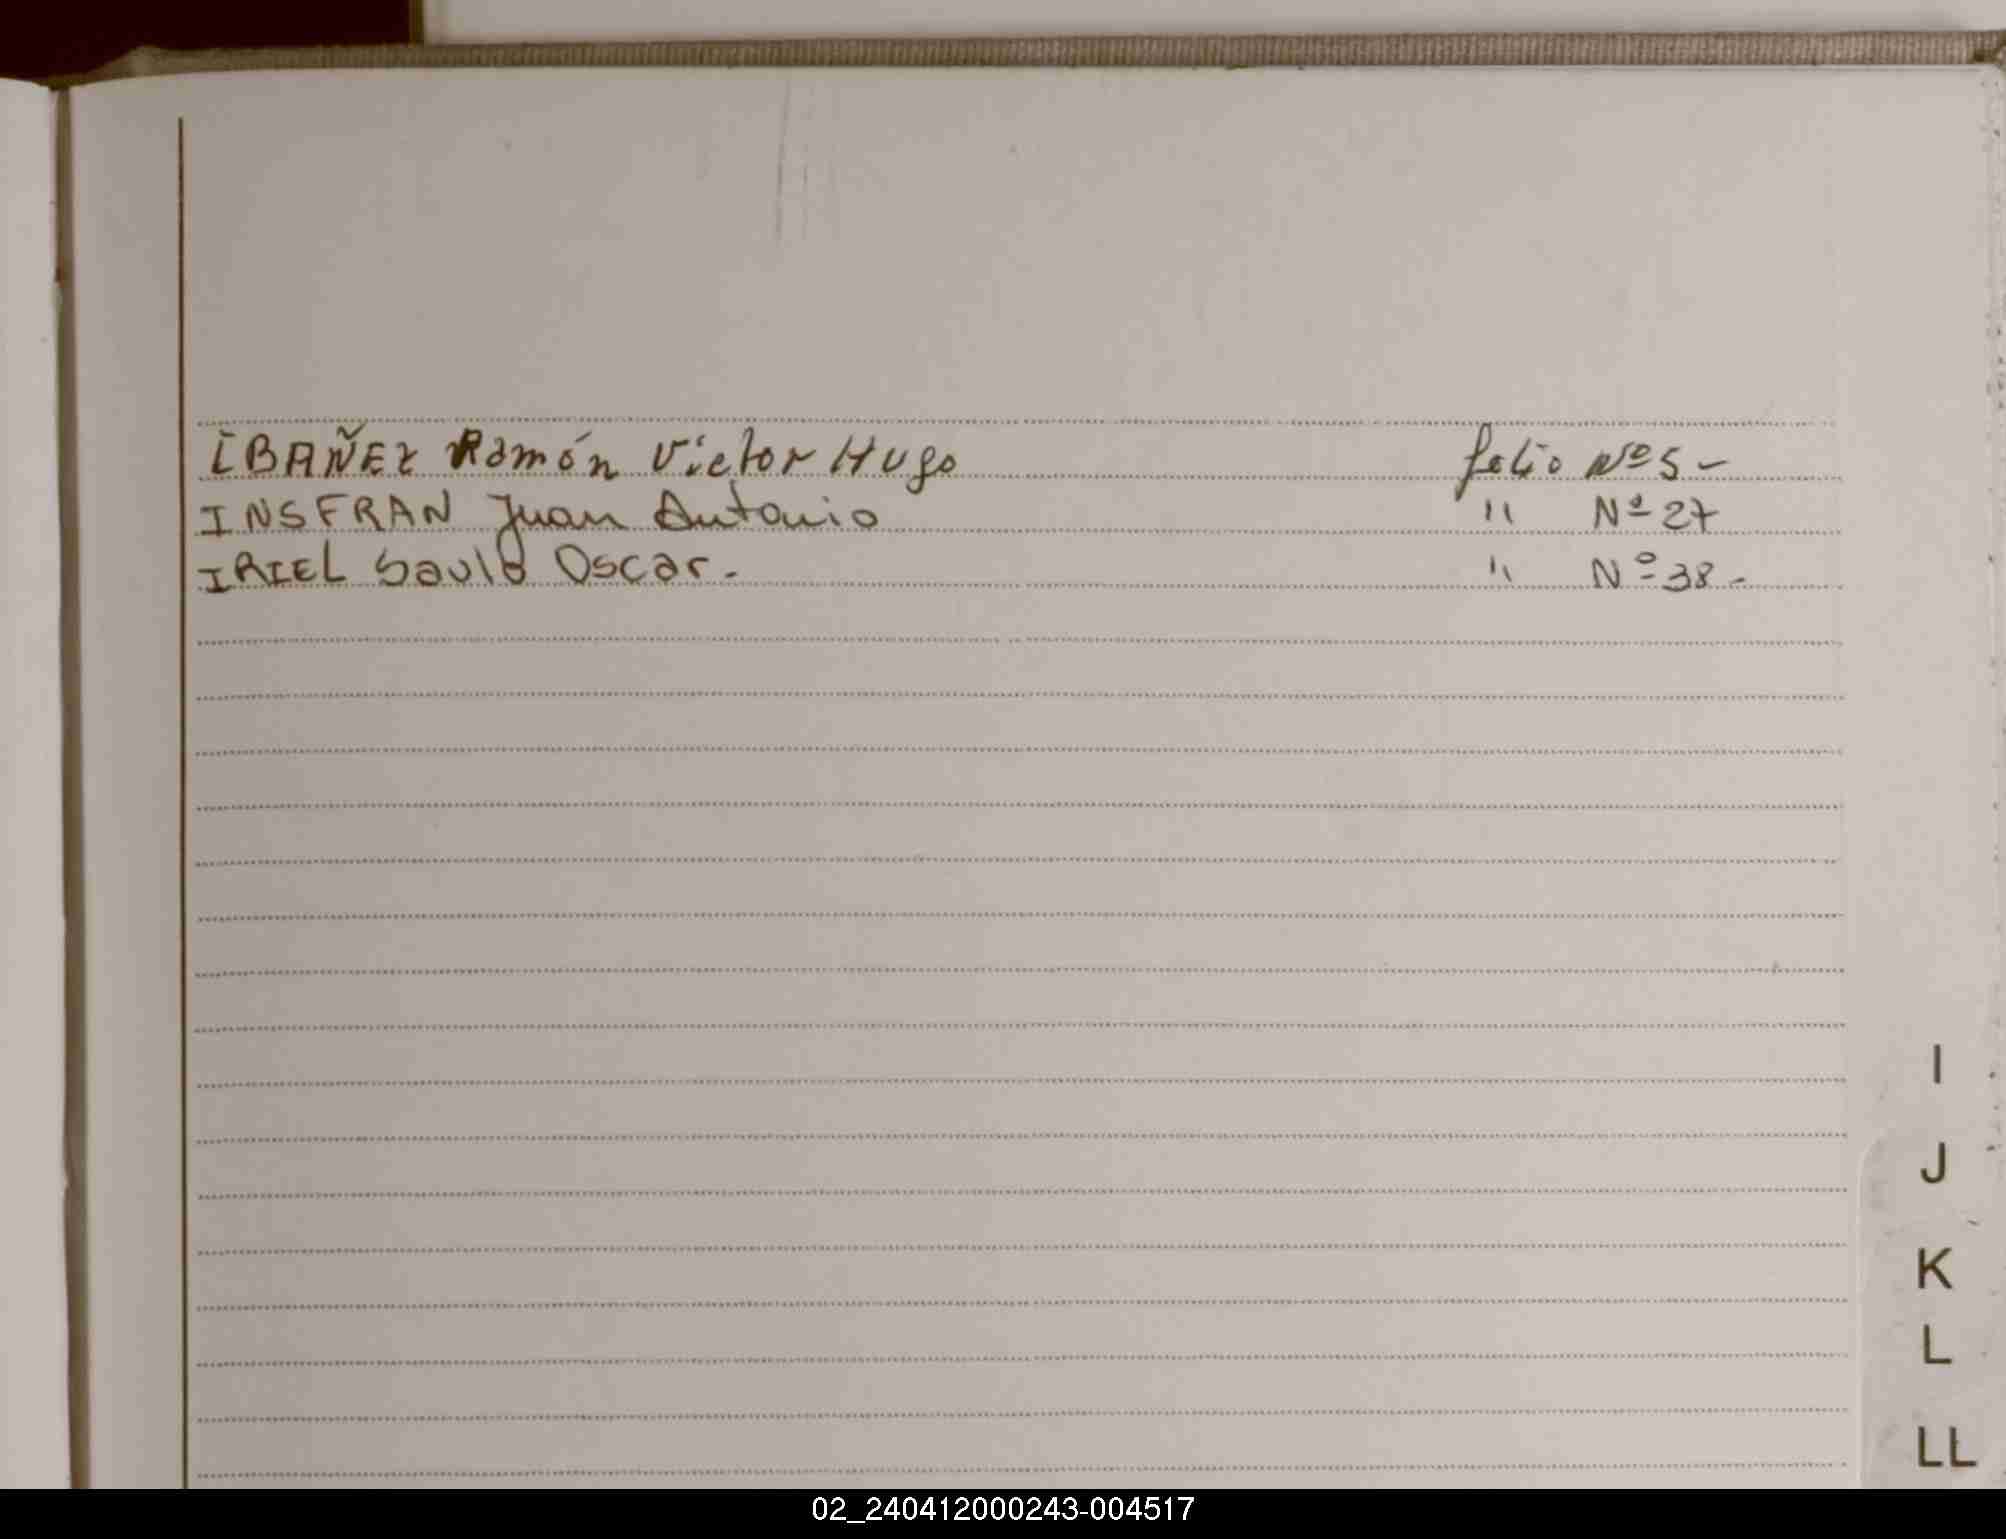 IBAÑEZ Ramón Victor Hugo folio Nº 5 -
INSFRAN Juan Antonio " Nº 27
IRIEL Saulo Oscar. " Nº 38 -
I
J
K
L
LL
02_240412000243-004517